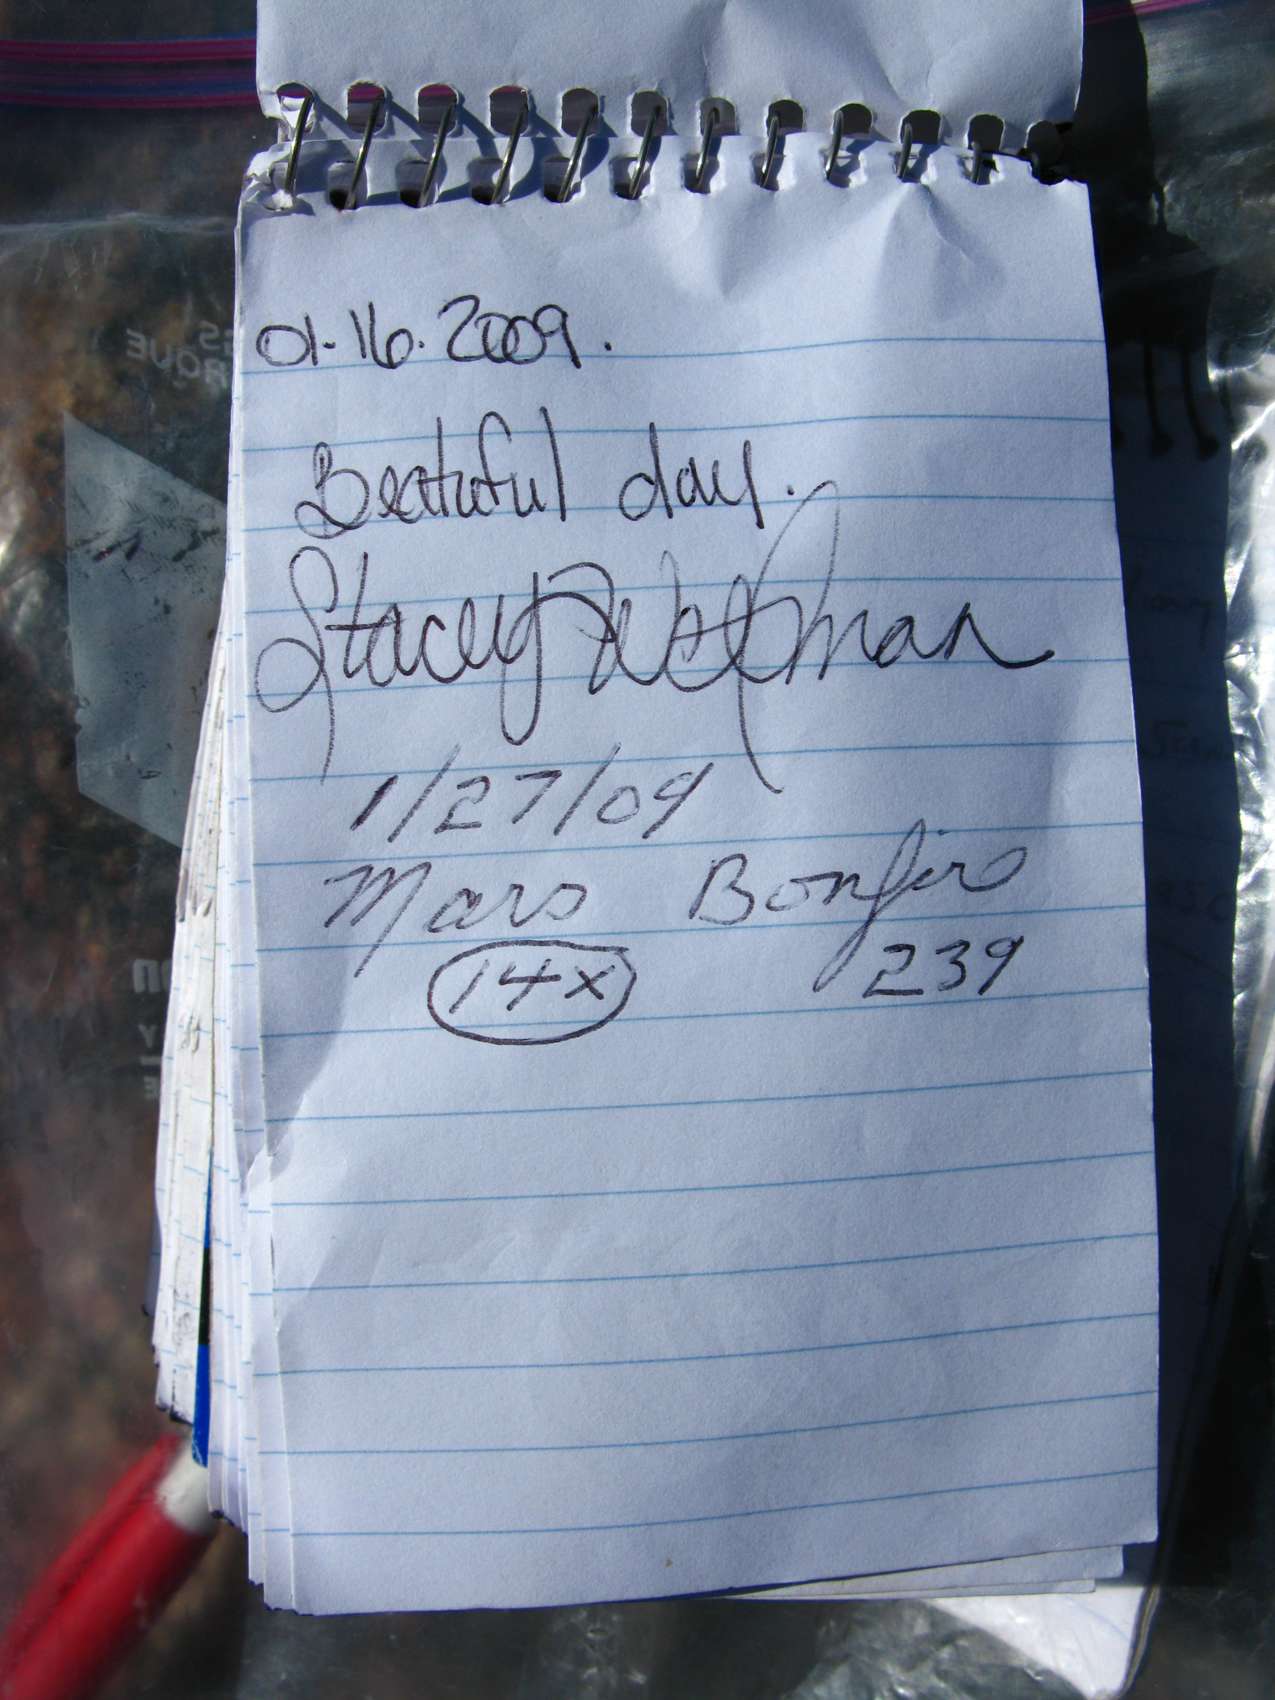 01.16.2009.
Beatuful day.
Stacey
1/27/09
Mars Bonfire
14x 239